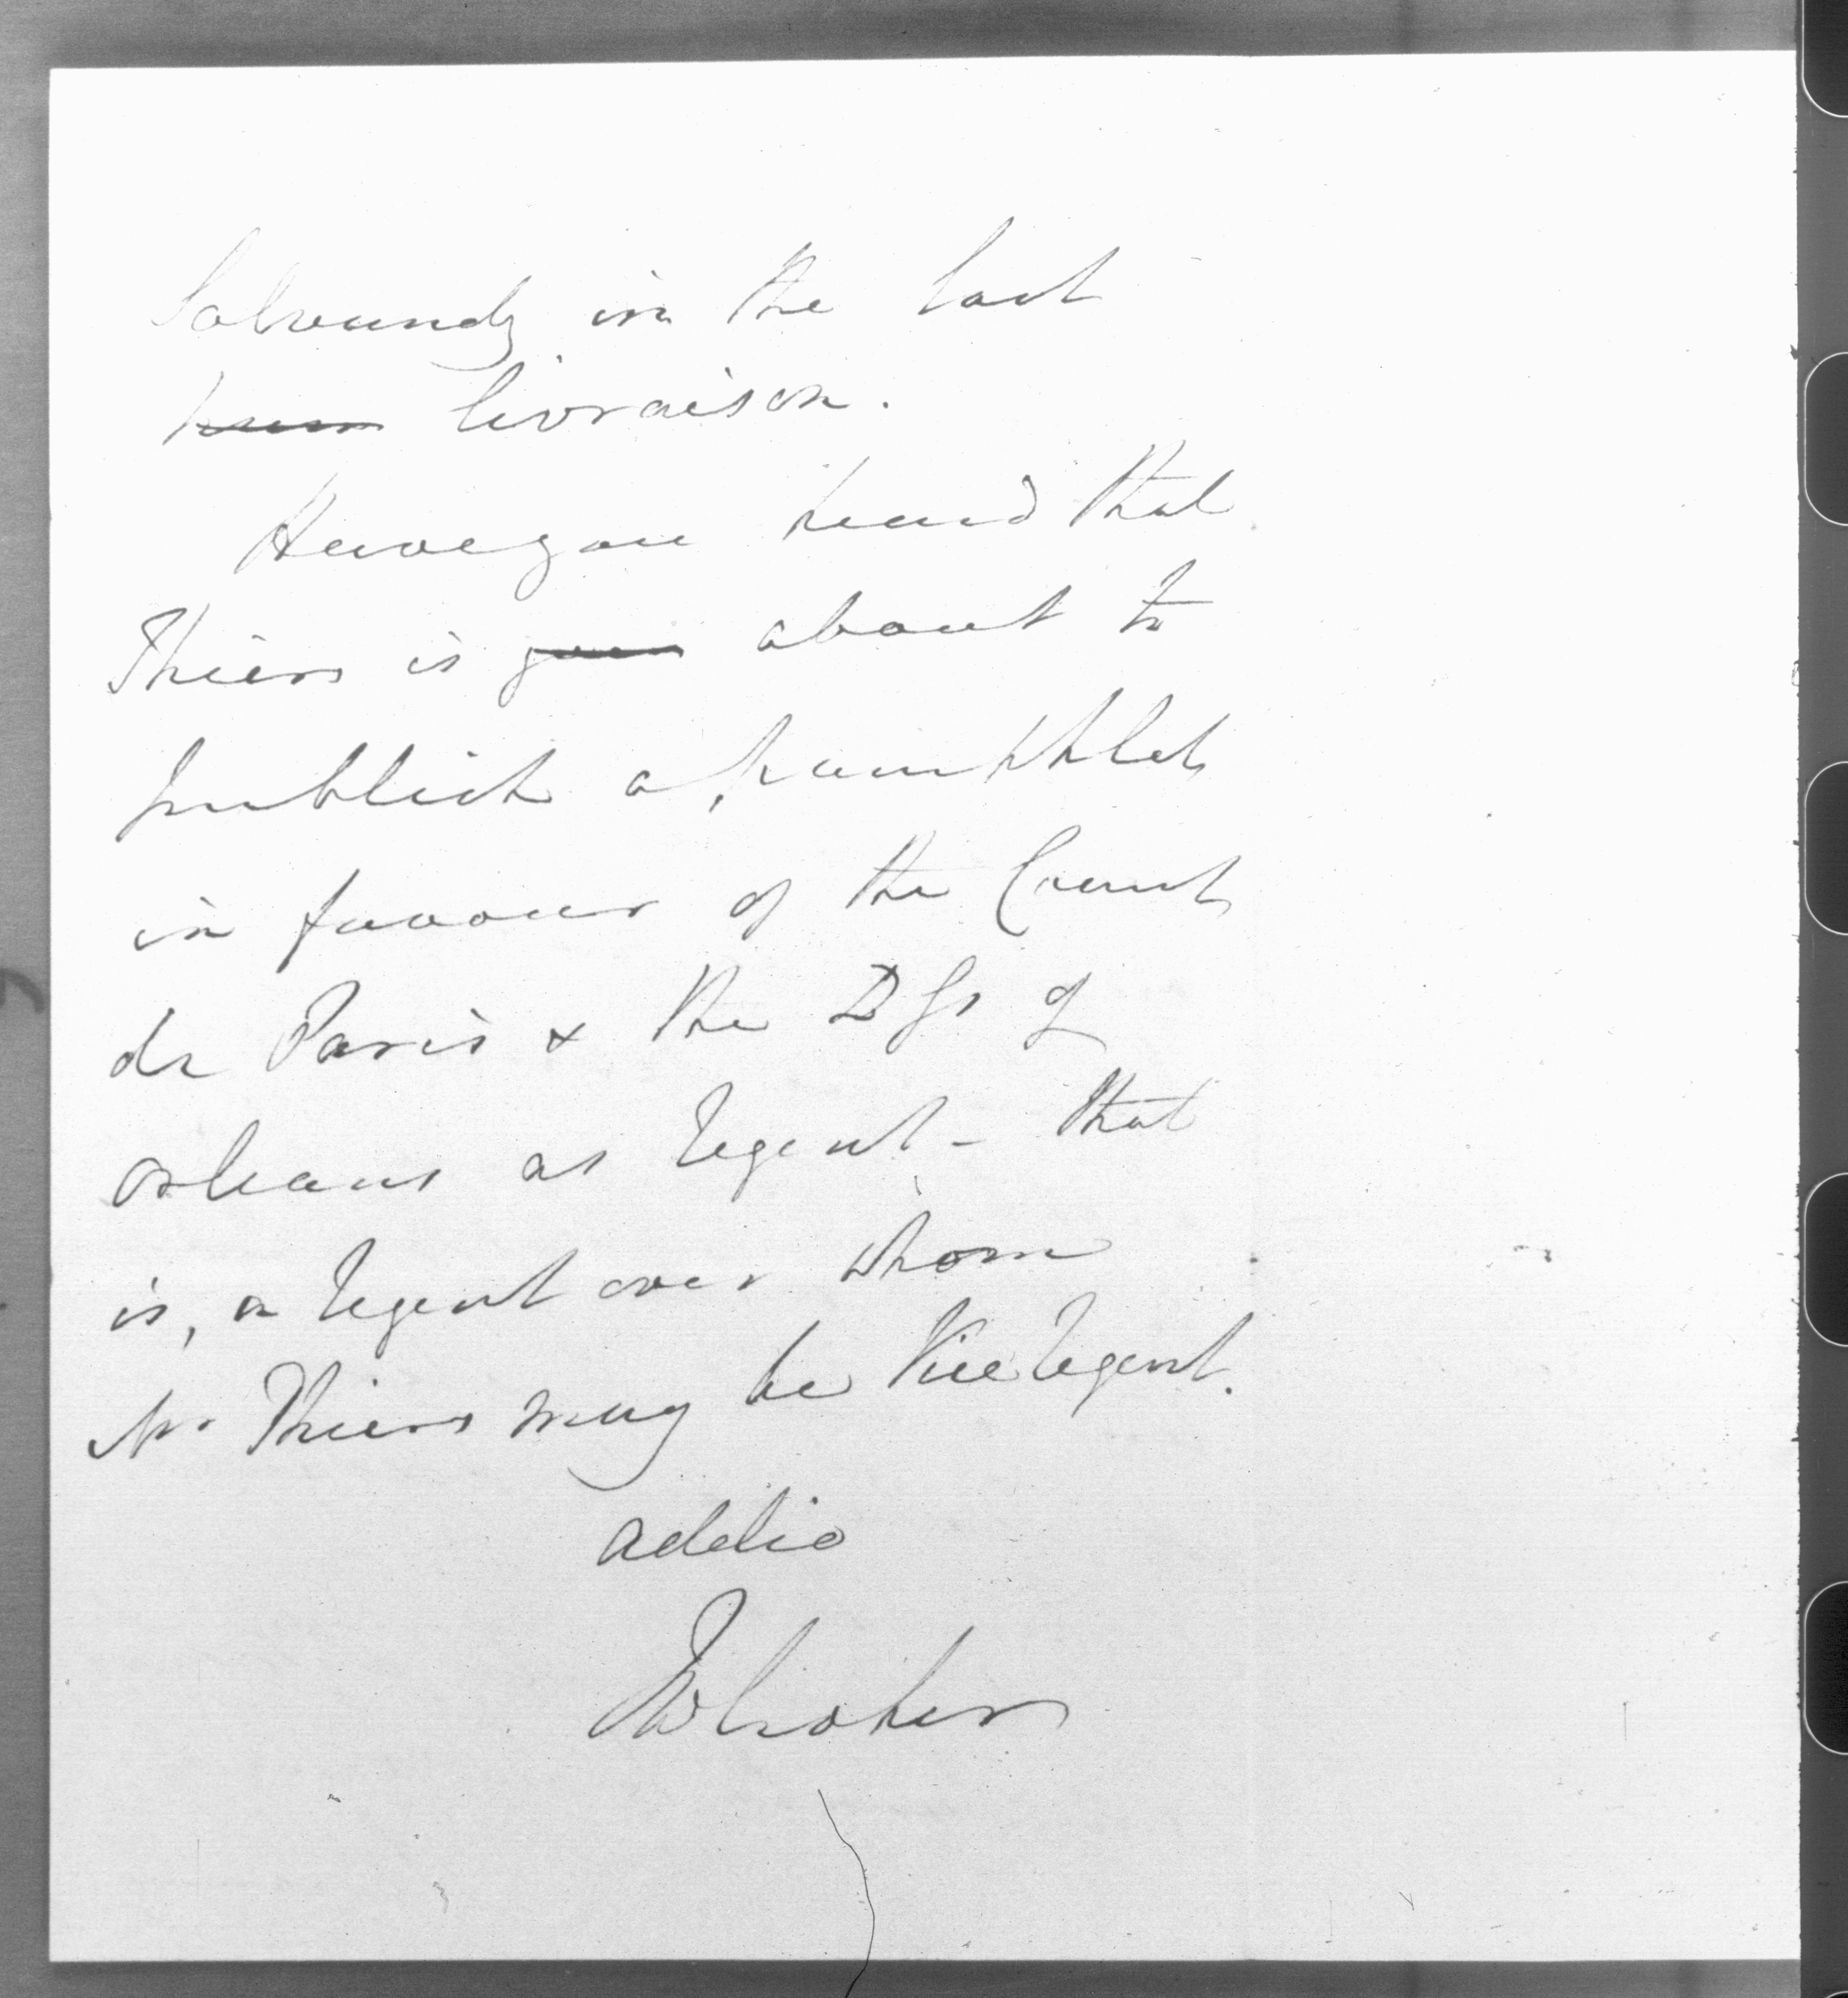 Salvandy in the last
livraison.
Have you heard that
Thiers is about to
publish a pamphlet
in favour of the Count
de Paris & the Dss of
Orleans as Regent – that
is, a Regent over whom
Mr Thiers may be Vice Regent.
addio
JWCroker